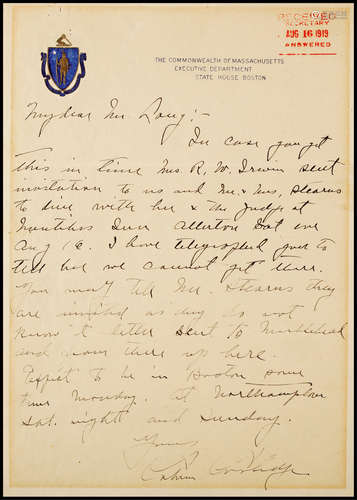 RECEIVED
SECRETARY
AUG 16 1919
ANSWERED
THE COMMONWEALTH OF MASSACHUSETTS
EXECUTIVE DEPARTMENT
STATE HOUSE BOSTON
My dear Mr Long:-
In case you get
this in time Mrs. R. W. Irwin sent
invitation to us and Mr & Mrs. Stearns
to dine with her & the Judge at
Nautilus Inn Allerton Sat eve
Aug 16. I have telegraphed you to
tell her we cannot get there.
You may tell Mr. Stearns they
are invited as they do not
know it letter sent to Marblehead
and from there up here.
Expect to be in Boston some
time Monday. At Northampton
Sat. night and Sunday.
Yours
Calvin Coolidge